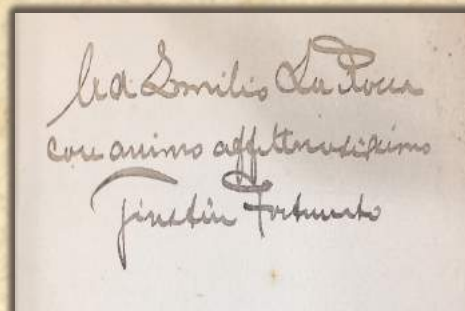 Ad Emilio La Rocca
con animo affettuosissimo
Giustino Fortunato